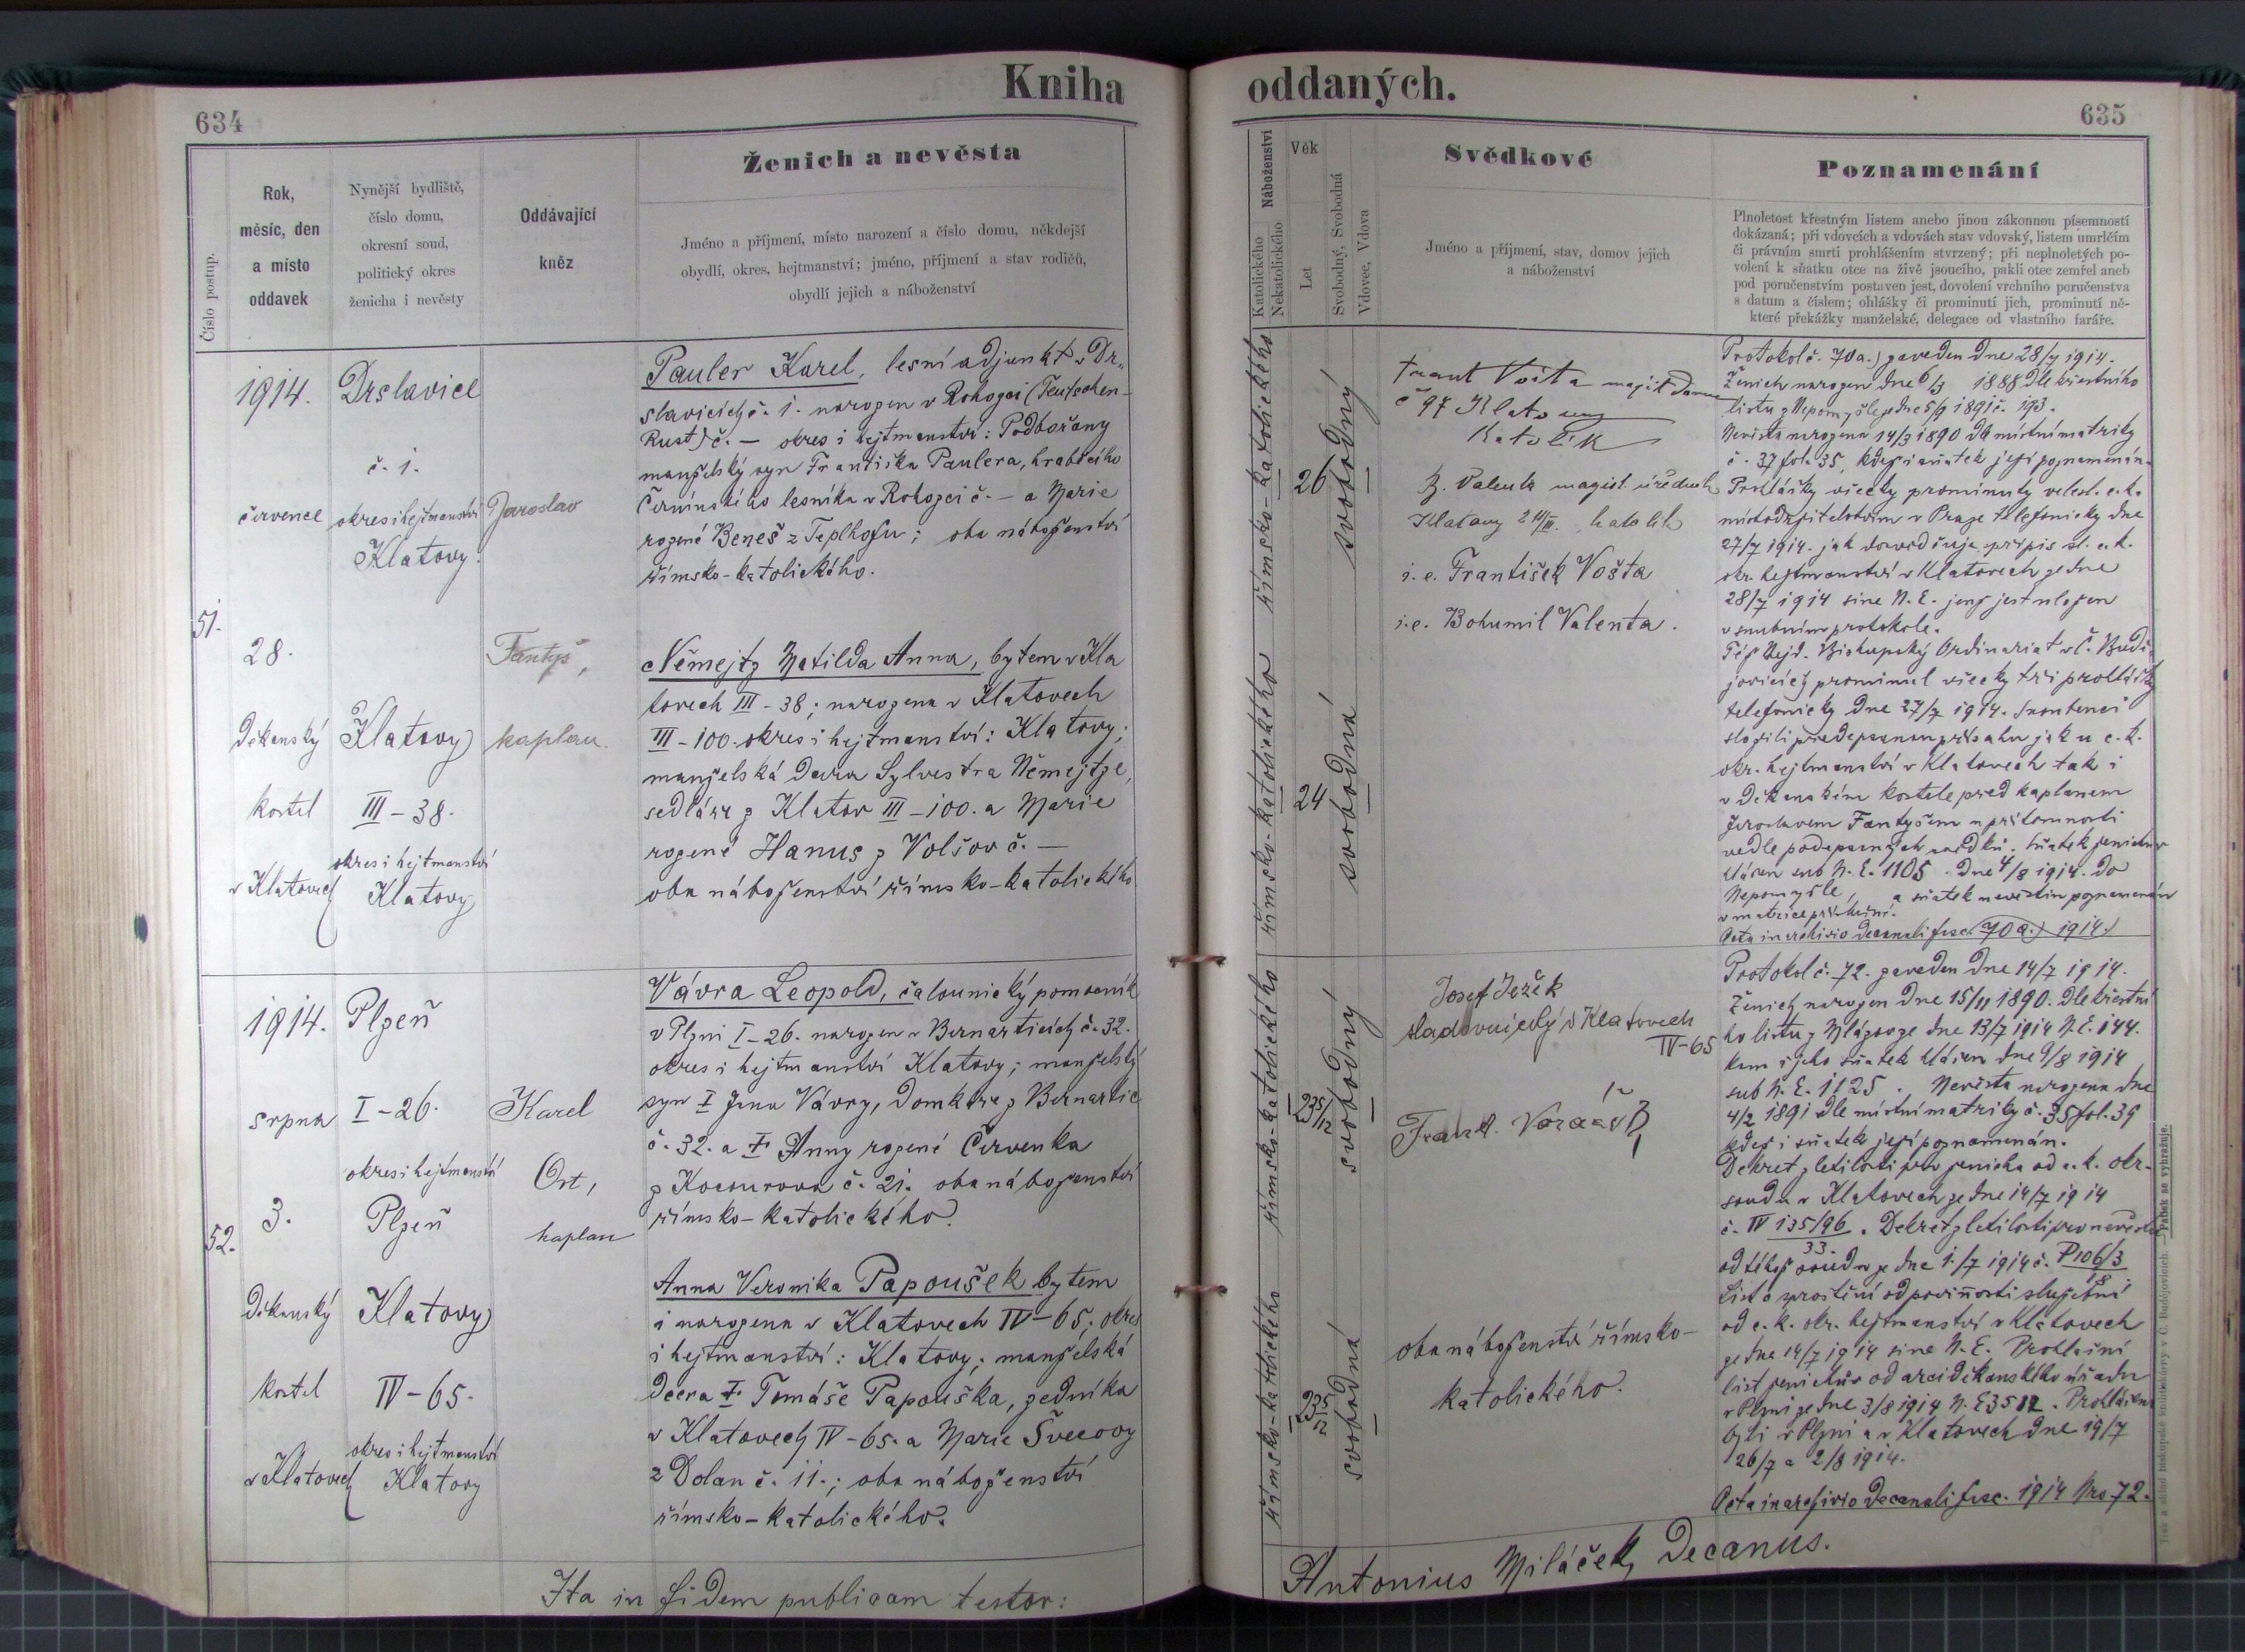 Kniha oddaných.
634
635
Číslo postup.
Rok,
měsíc, den
a místo
oddavek
Nynější bydliště,
číslo domu,
okresní soud,
politický okres
ženicha i nevěsty
Oddávající
kněz
Ženich a nevěsta
Jméno a příjmení, místo narození a číslo domu, někdejší
obydlí, okres, hejtmanství; jméno, příjmení a stav rodičů,
obydlí jejich a náboženství
Náboženství
Katolického
Nekatolického
Věk
Let
Svobodný, Svobodná
Vdovec, Vdova
Svědkové
Jméno a příjmení, stav, domov jejich
a náboženství
Poznamenání
Plnoletost křestným listem anebo jinou zákonnou písemností
dokázaná; při vdovcích a vdovách stav vdovský, listem úmrlčím
či právním smrti prohlášením stvrzený; při neplnoletých po-
volení k sňatku otce na živě jsoucího, pakli otec zemřel aneb
pod poručenstvím postaven jest, dovolení vrchního poručenstva
s datum a číslem; ohlášky či prominutí jich, prominutí ně-
které překážky manželské, delegace od vlastního faráře.
51.
1914.
července
28.
Děkanský
kostel
v Klatovech
Drslavice
č. 1.
okres i hejtmanství
Klatovy.
Klatovy
III - 38.
okres i hejtmanství
Klatovy
Jaroslav
Fantyš,
kaplan.
Pauler Karel, lesní adjunkt v Dr„
slavicích č. 1. narozen v Rohozci (Teutschen-
Rust) č. — okres i hejtmanství: Podbořany
manželský syn Františka Paulera, hraběcího
Černínského lesníka v Rohozci č. — a Marie
rozené Beneš z Teplhofu; oba náboženství
římsko-katolického.
Němejtz Matilda Anna, bytem v Kla
tovech III - 38; narozena v Klatovech
III - 100. okres i hejtmanství: Klatovy;
manželská dcera Sylvestra Němejtze,
sedláře z Klatov III - 100. a Marie
rozené Hanus z Volšov č. —
oba náboženství římsko-katolického
římsko-katolického
26
svobodný
římsko-katolického
24
svobodná
Frant Vošta majit domu
č 97 Klatovy
Katolík
B. Valenta magist. úředník
Klatovy III. katolík
i. e. František Vošta
i. e. Bohumil Valenta.
Protokol č. 70a.) zaveden dne 28/7 1914.
Ženich narozen dne 6/3 1888 dle křestního
listu z Nepomyšle ze dne 5/9 1891 č. 193.
Nevěsta narozena 14/3 1890 dle místní matriky
č. 37 fol. 35, kdež i sňatek její poznamenán.
Prohlášky všecky prominuty velesl. c. k.
místodržitelstvím v Praze telefonicky dne
27/7 1914. jak dosvědčuje přípis sl. c. k.
okr. hejtmanství v Klatovech ze dne
28/7 1914 sine N. E. jenž jest uložen
v snubním protokole.
Též Nejd. Biskupský Ordinariat v Č. Budě-
jovicích prominul všecky tři prohlášky
telefonicky dne 27/7 1914. Snoubenci
složili předepsanou přísahu jak u c. k.
okr. hejtmanství v Klatovech tak i
v Děkanském kostele před kaplanem
Jaroslavem Fantyšem u přítomnosti
vedle podepsaných svědků. Sňatek ženichův
hlášen sub N. E. 1105. dne 4/8 1914. do
Nepomyšle, a sňatek nevěstin poznamenán
v matrice příslušní.
Acta in archivio decanali fasc. 70 a.) 1914.)
52.
1914.
srpna
3.
Děkanský
kostel
v Klatovech
Plzeň
I - 26.
okres i hejtmanství
Plzeň
Klatovy
IV - 65.
okres i hejtmanství
Klatovy
Karel
Ort,
kaplan
Vávra Leopold, čalounický pomocník
v Plzni I - 26. narozen v Bernarticích č. 32.
okres i hejtmanství Klatovy; manželský
syn † Jana Vávry, domkáře z Bernartic
č. 32. a † Anny rozené Červenka
z Kocourova č. 21. oba náboženství
římsko-katolického.
Anna Veronika Papoušek bytem
i narozena v Klatovech IV - 65; okres
i hejtmanství: Klatovy; manželská
dcera † Tomáše Papouška, zedníka
v Klatovech IV - 65. a Marie Švecovy
z Dolan č. 11.; oba náboženství
římsko-katolického.
římsko-katolického
23 5/12
svobodný
římsko-katolického
23 5/12
svobodná
Josef Ježek
sladovnický v Klatovech
IV-65
Frant.
oba náboženství římsko-
katolického.
Protokol č. 72. zaveden dne 14/7 1914.
Ženich narozen dne 15/11 1890. dle křestní
ho listu z Mlázov ze dne 13/7 1914 N. E. 144.
kam i jeho sňatek hlášen dne 9/8 1914
sub N. E. 1125. Nevěsta narozena dne
4/2 1891 dle místní matriky č. 35 fol. 39
kdež i sňatek její poznamenán.
Dekret zletilosti pro ženicha od c. k. okr.
soudu v Klatovech ze dne 14/7 1914
č. IV 135/96 . Dekret zletilosti pro nevěstu
33.
od téhož soudu ze dne 1./7 1914 č. P 106/3
18
List o zproštění od povinnosti služební
od c. k. okr. hejtmanství v Klatovech
ze dne 14/7 1914 sine N. E. Prohlašní
list ženichův od arciděkanského úřadu
v Plzni ze dne 3/8 1914 N. E 3512. Prohlášeni
byli v Plzni a v Klatovech dne 19/7
26/7 a 2/8 1914.
Acta in archivio decanali fasc. 1914 Nro 72.
Ita in fidem publicam testor:
Antonius Miláček, Decanus.
Tisk a sklad biskupské knihtiskárny v Č. Budějovicích. Patisk se vyhražuje.